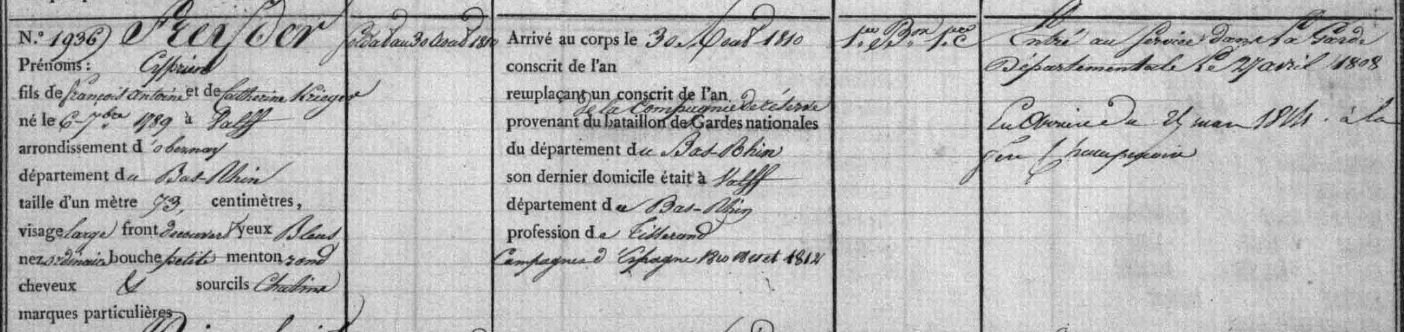 N.° 1936 Freyder
Prénoms : Cyprien
fils de françois antoine et de Catherine Krieger
né le 6 7bre 1789 à Valff
arrondissement d'obernay
département du Bas-Rhin
taille d'un mètre 73, centimètres,
visage large front découvert yeux Bleus
nez ordinaire bouche petite menton rond
cheveux & sourcils Chatins
marques particulières
soldat au 30 aout 1810
Arrivé au corps le 30 Aout 1810
conscrit de l'an
remplaçant un conscrit de l'an
de la Compagnie de réserve
provenant du bataillon de Gardes nationales
du département du Bas Rhin
son dernier domicile était à Valff
département du Bas-Rhin
profession de Tisserand
Campagnes d'Espagne 1810 1811 et 1812
1er Bon 1ere Cie
Entré au service dans la Garde
Départementale le 27 avril 1808
1814 à la